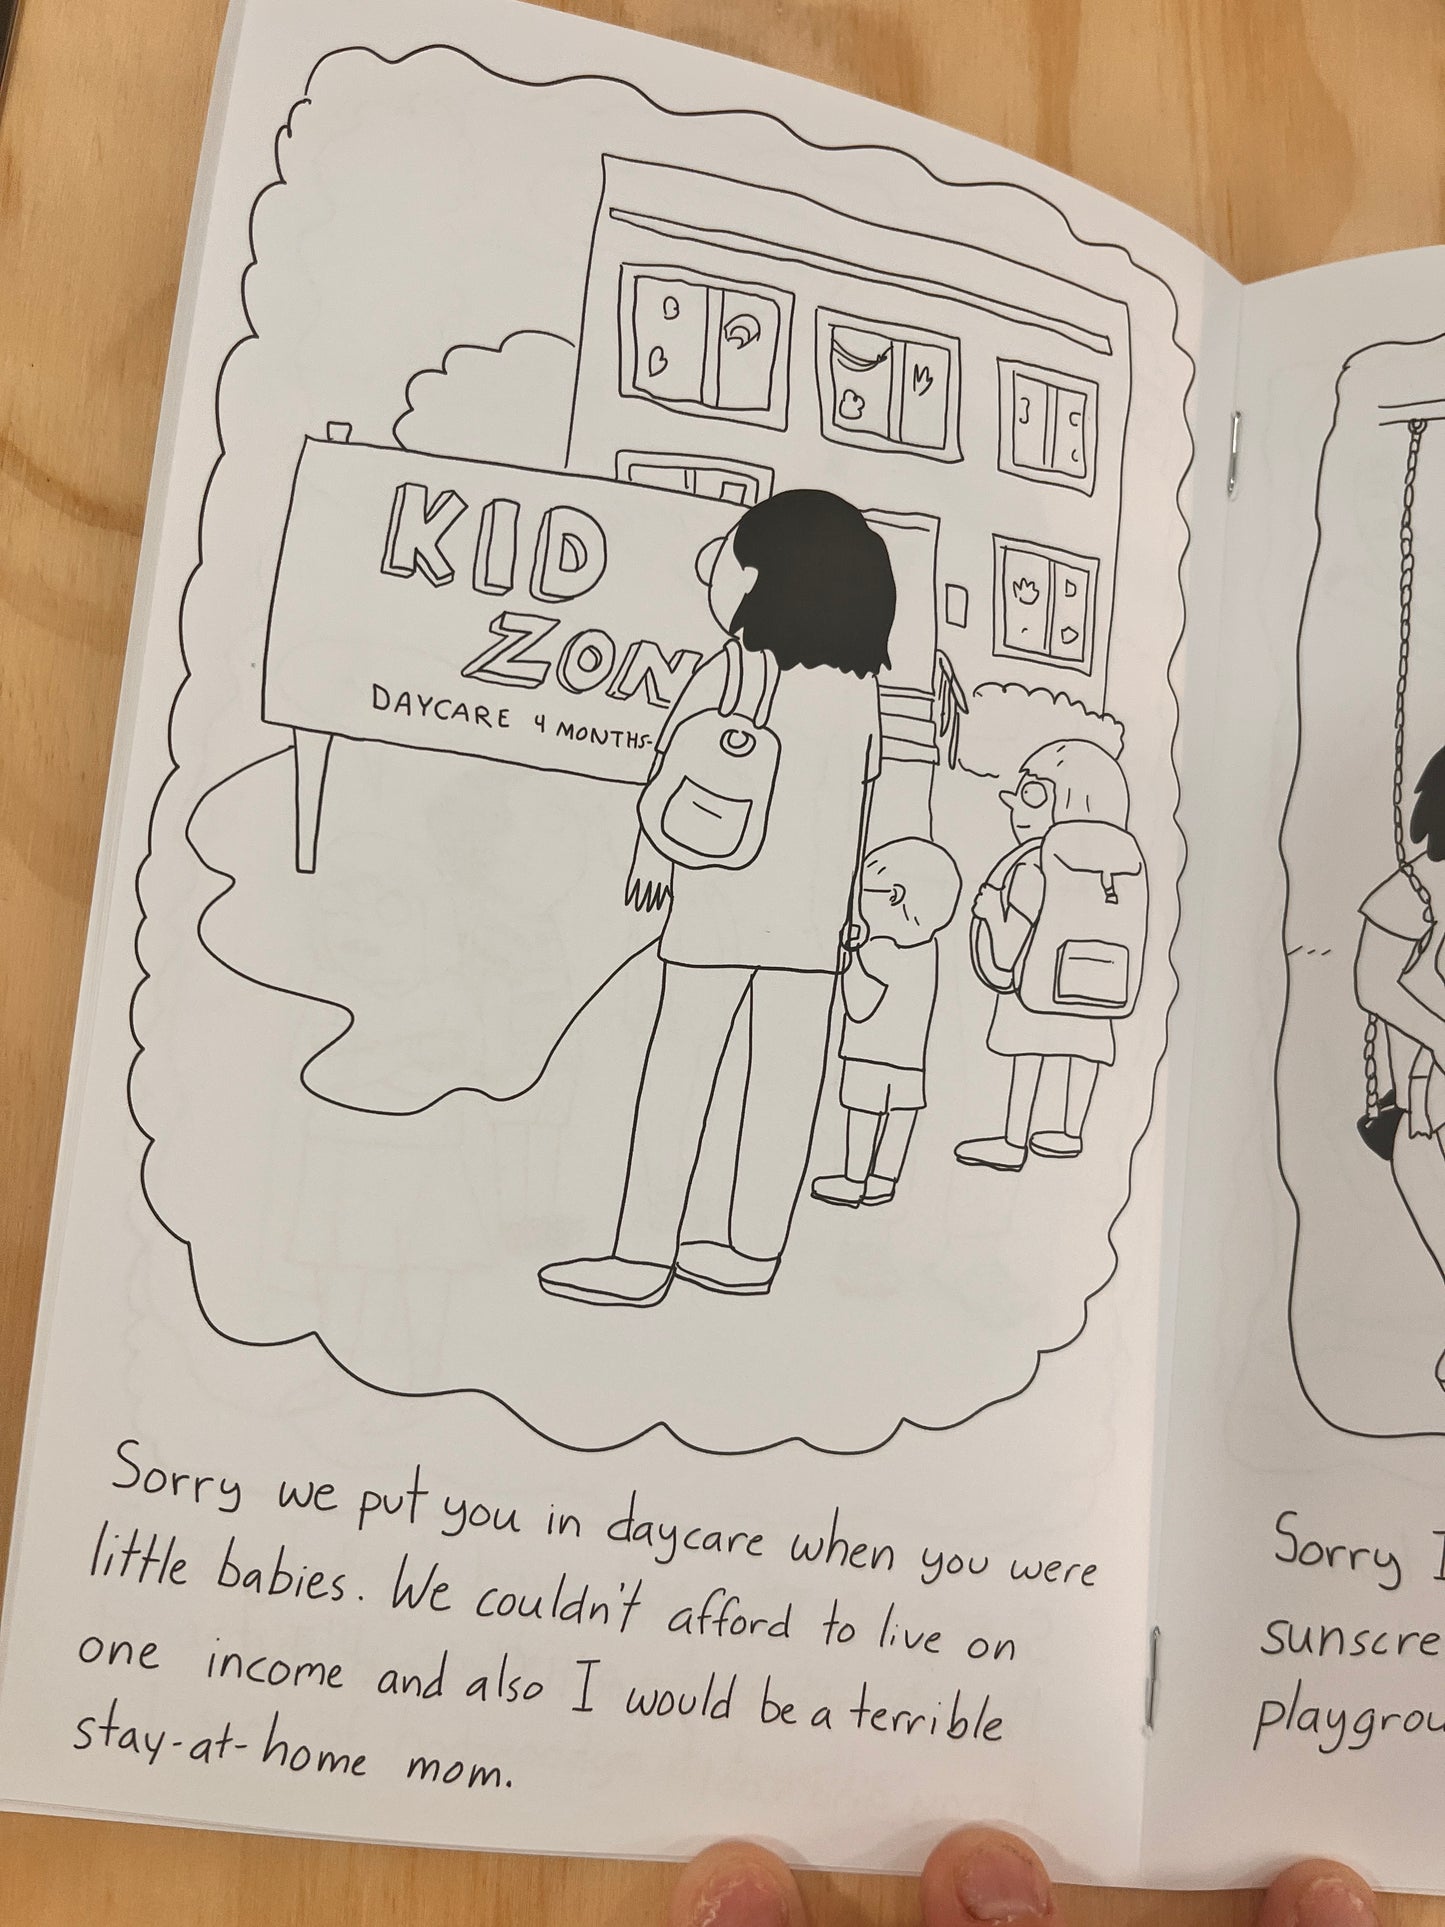 KID
ZON
DAYCARE 4 MONTHS-
Sorry we put you in daycare when you were
little babies. We couldn't afford to live on
one income and also I would be a terrible
stay-at-home mom.
Sorry I
sunscre
playgrou